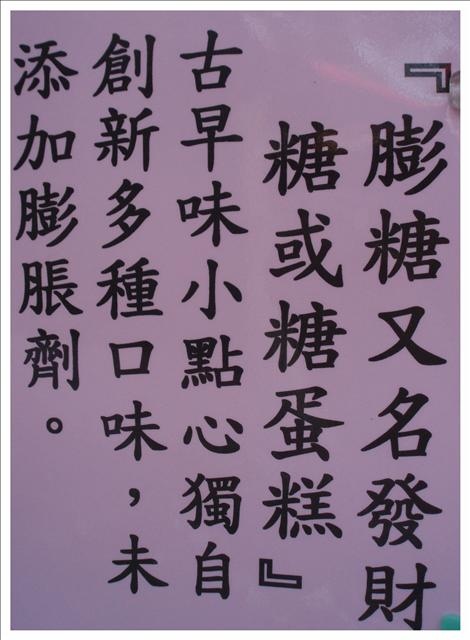 『膨糖又名發財
糖或糖蛋糕』
古早味小點心獨自
創新多種口味，未
添加膨脹劑。